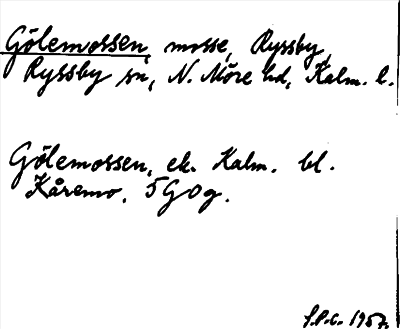 Gölemossen, mosse, Ryssby,
Ryssby sn, N. Möre hd, Kalm. l.
Gölemossen, ek. Kalm. bl.
Kåremo. 5G0g.
S.P.C. 1957.